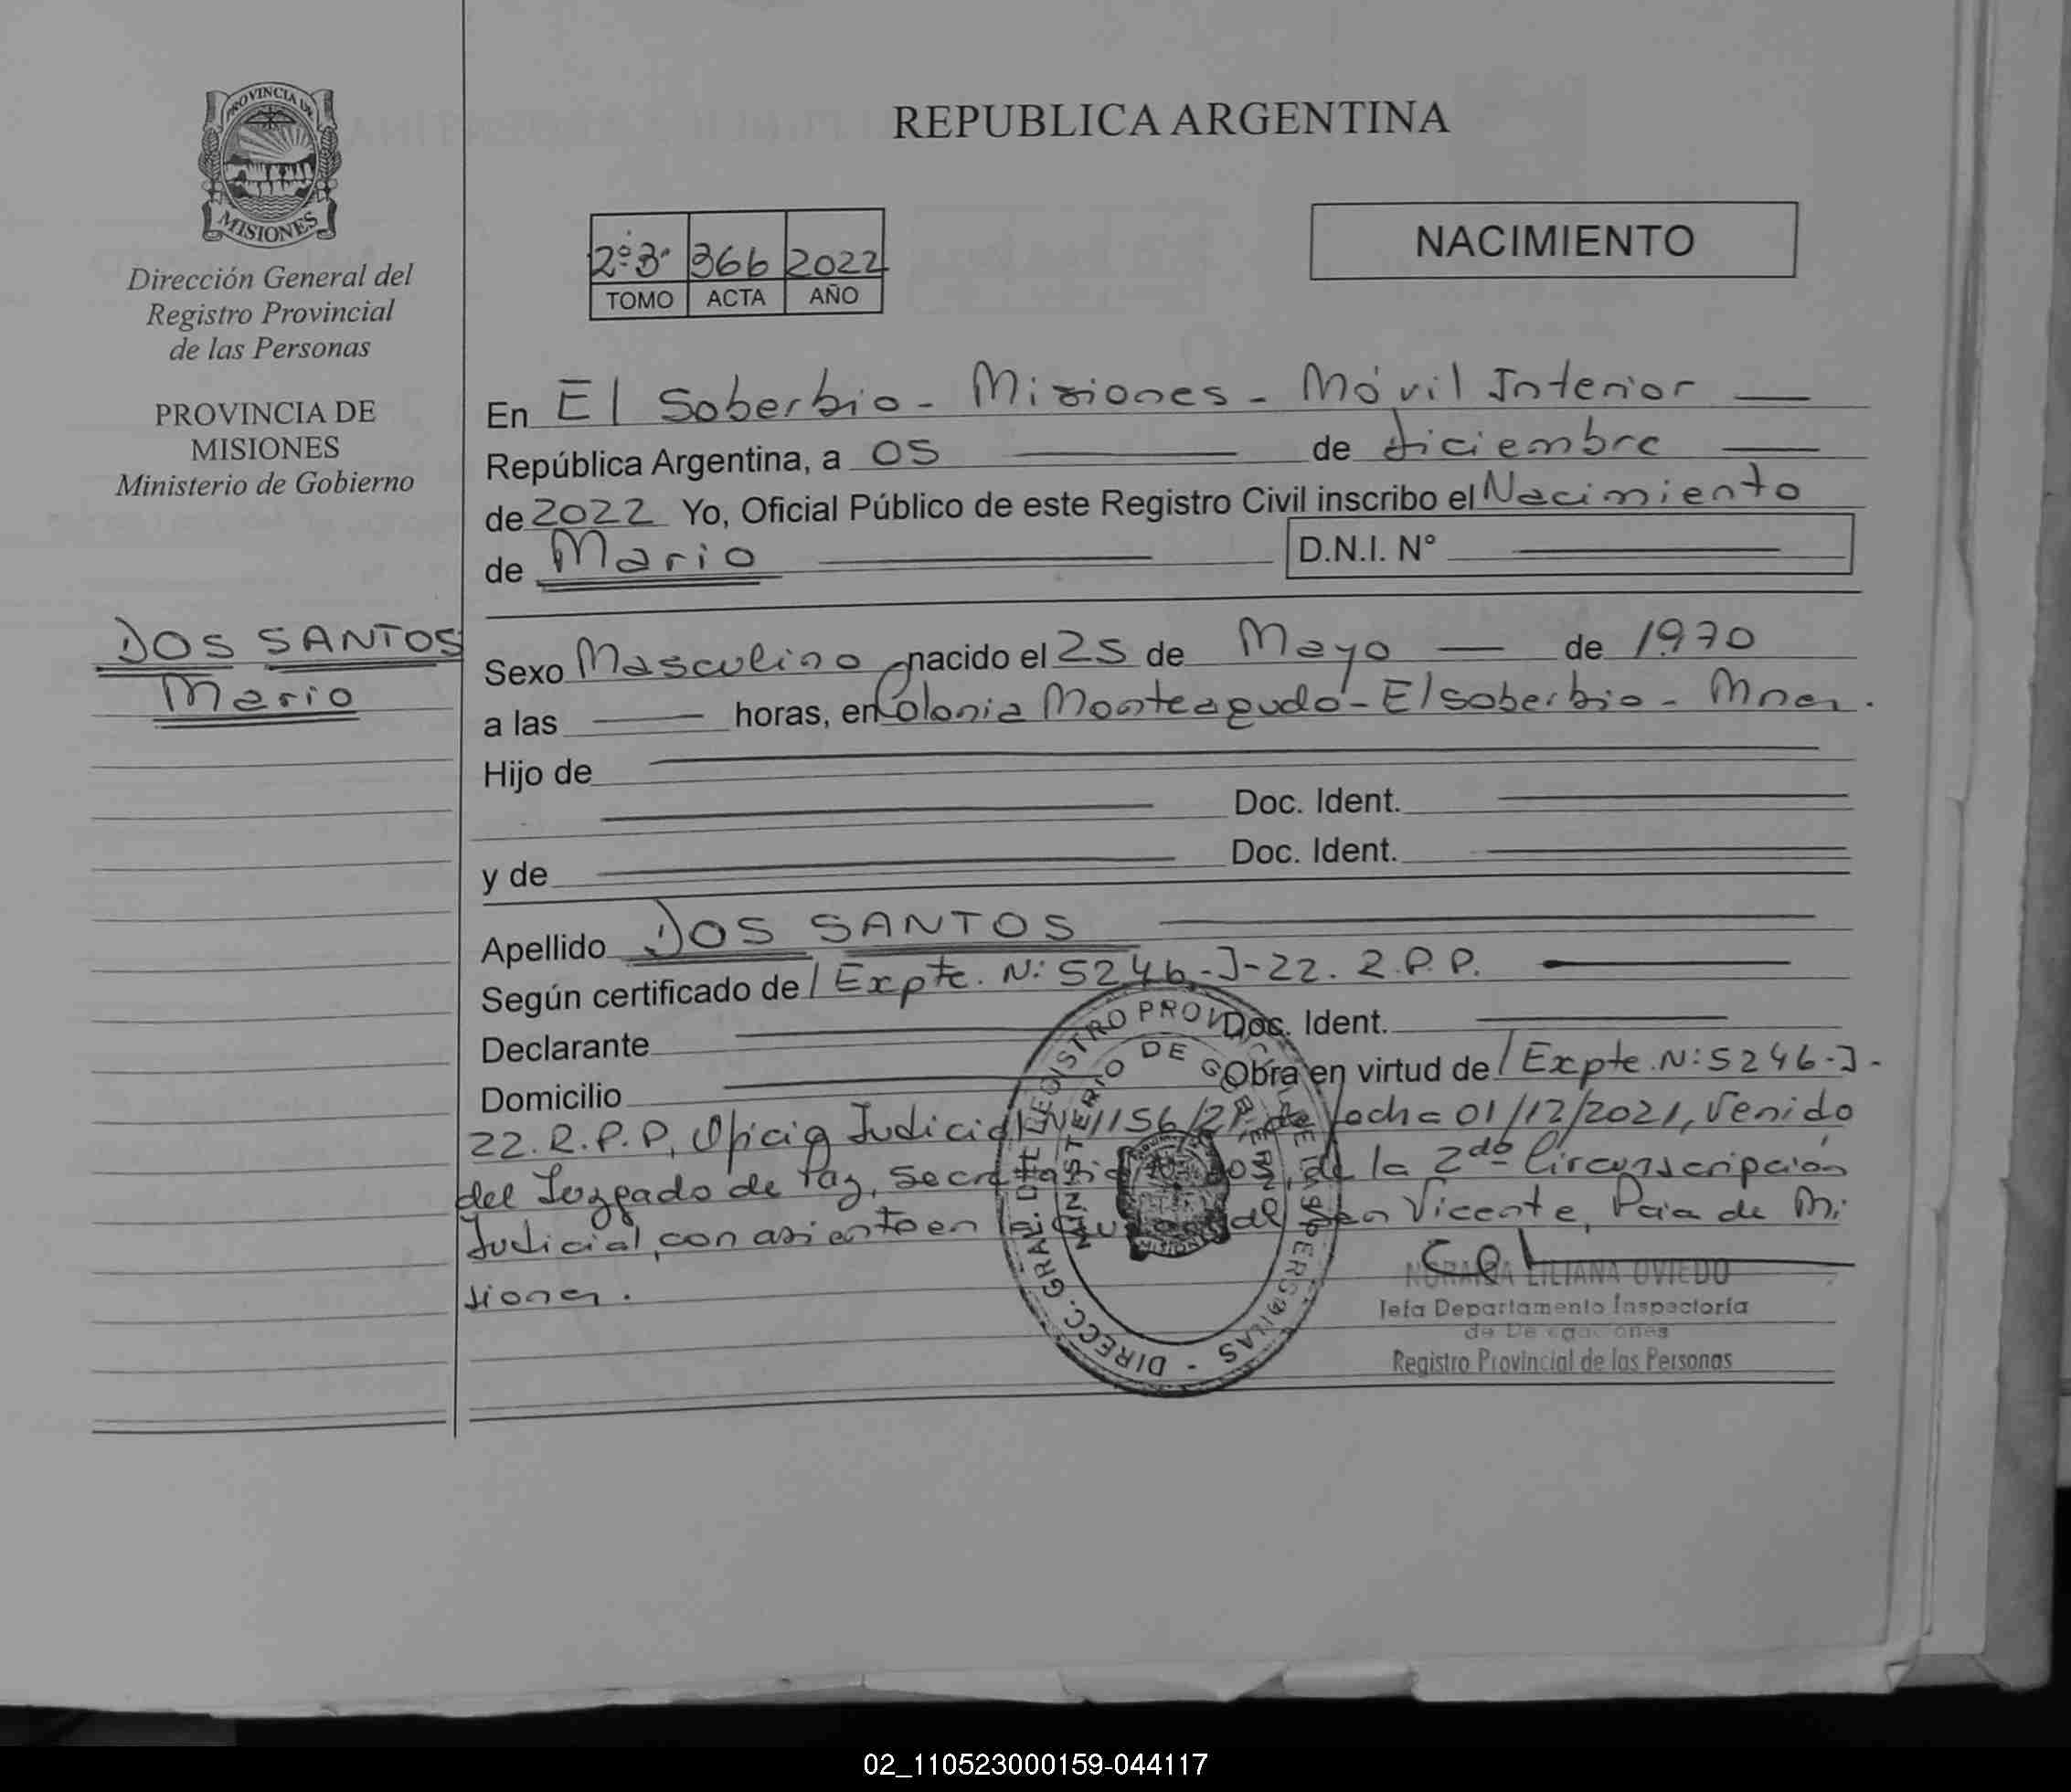 PROVINCIA DE
MISIONES
Dirección General del
Registro Provincial
de las Personas
PROVINCIA DE
MISIONES
Ministerio de Gobierno
DOS SANTOS
Mario
REPUBLICA ARGENTINA
2º 3º 366 2022
TOMO ACTA AÑO
NACIMIENTO
En El Soberbio - Misiones - Móvil Interior
República Argentina, a 05 de diciembre
de 2022 Yo, Oficial Público de este Registro Civil inscribo el Nacimiento
de Mario D.N.I. N°
Sexo Masculino nacido el 25 de Mayo de 1970
a las horas, en Colonia Monteagudo - El Soberbio - Mnes.
Hijo de
Doc. Ident.
y de Doc. Ident.
Apellido DOS SANTOS
Según certificado de / Expte. N: 5246-J-22. R.P.P.
Declarante Doc. Ident.
Domicilio Obra en virtud de / Expte. N: 5246-J-
22. R.P.P, Oficio Judicial N 1156/21 de fecha 01/12/2021, Venido
del Juzgado de Paz, Secretaria de la 2da Circunscripción
Judicial, con asiento en San Vicente, Pcia de Mi
siones.
DIRECC. GRAL. DEL REGISTRO PROVINCIAL DE LAS PERSONAS
MINISTERIO DE GOBIERNO
MISIONES
NORMA LILIANA OVIEDO
Jefa Departamento Inspectoría
de Delegaciones
Registro Provincial de las Personas
02_110523000159-044117